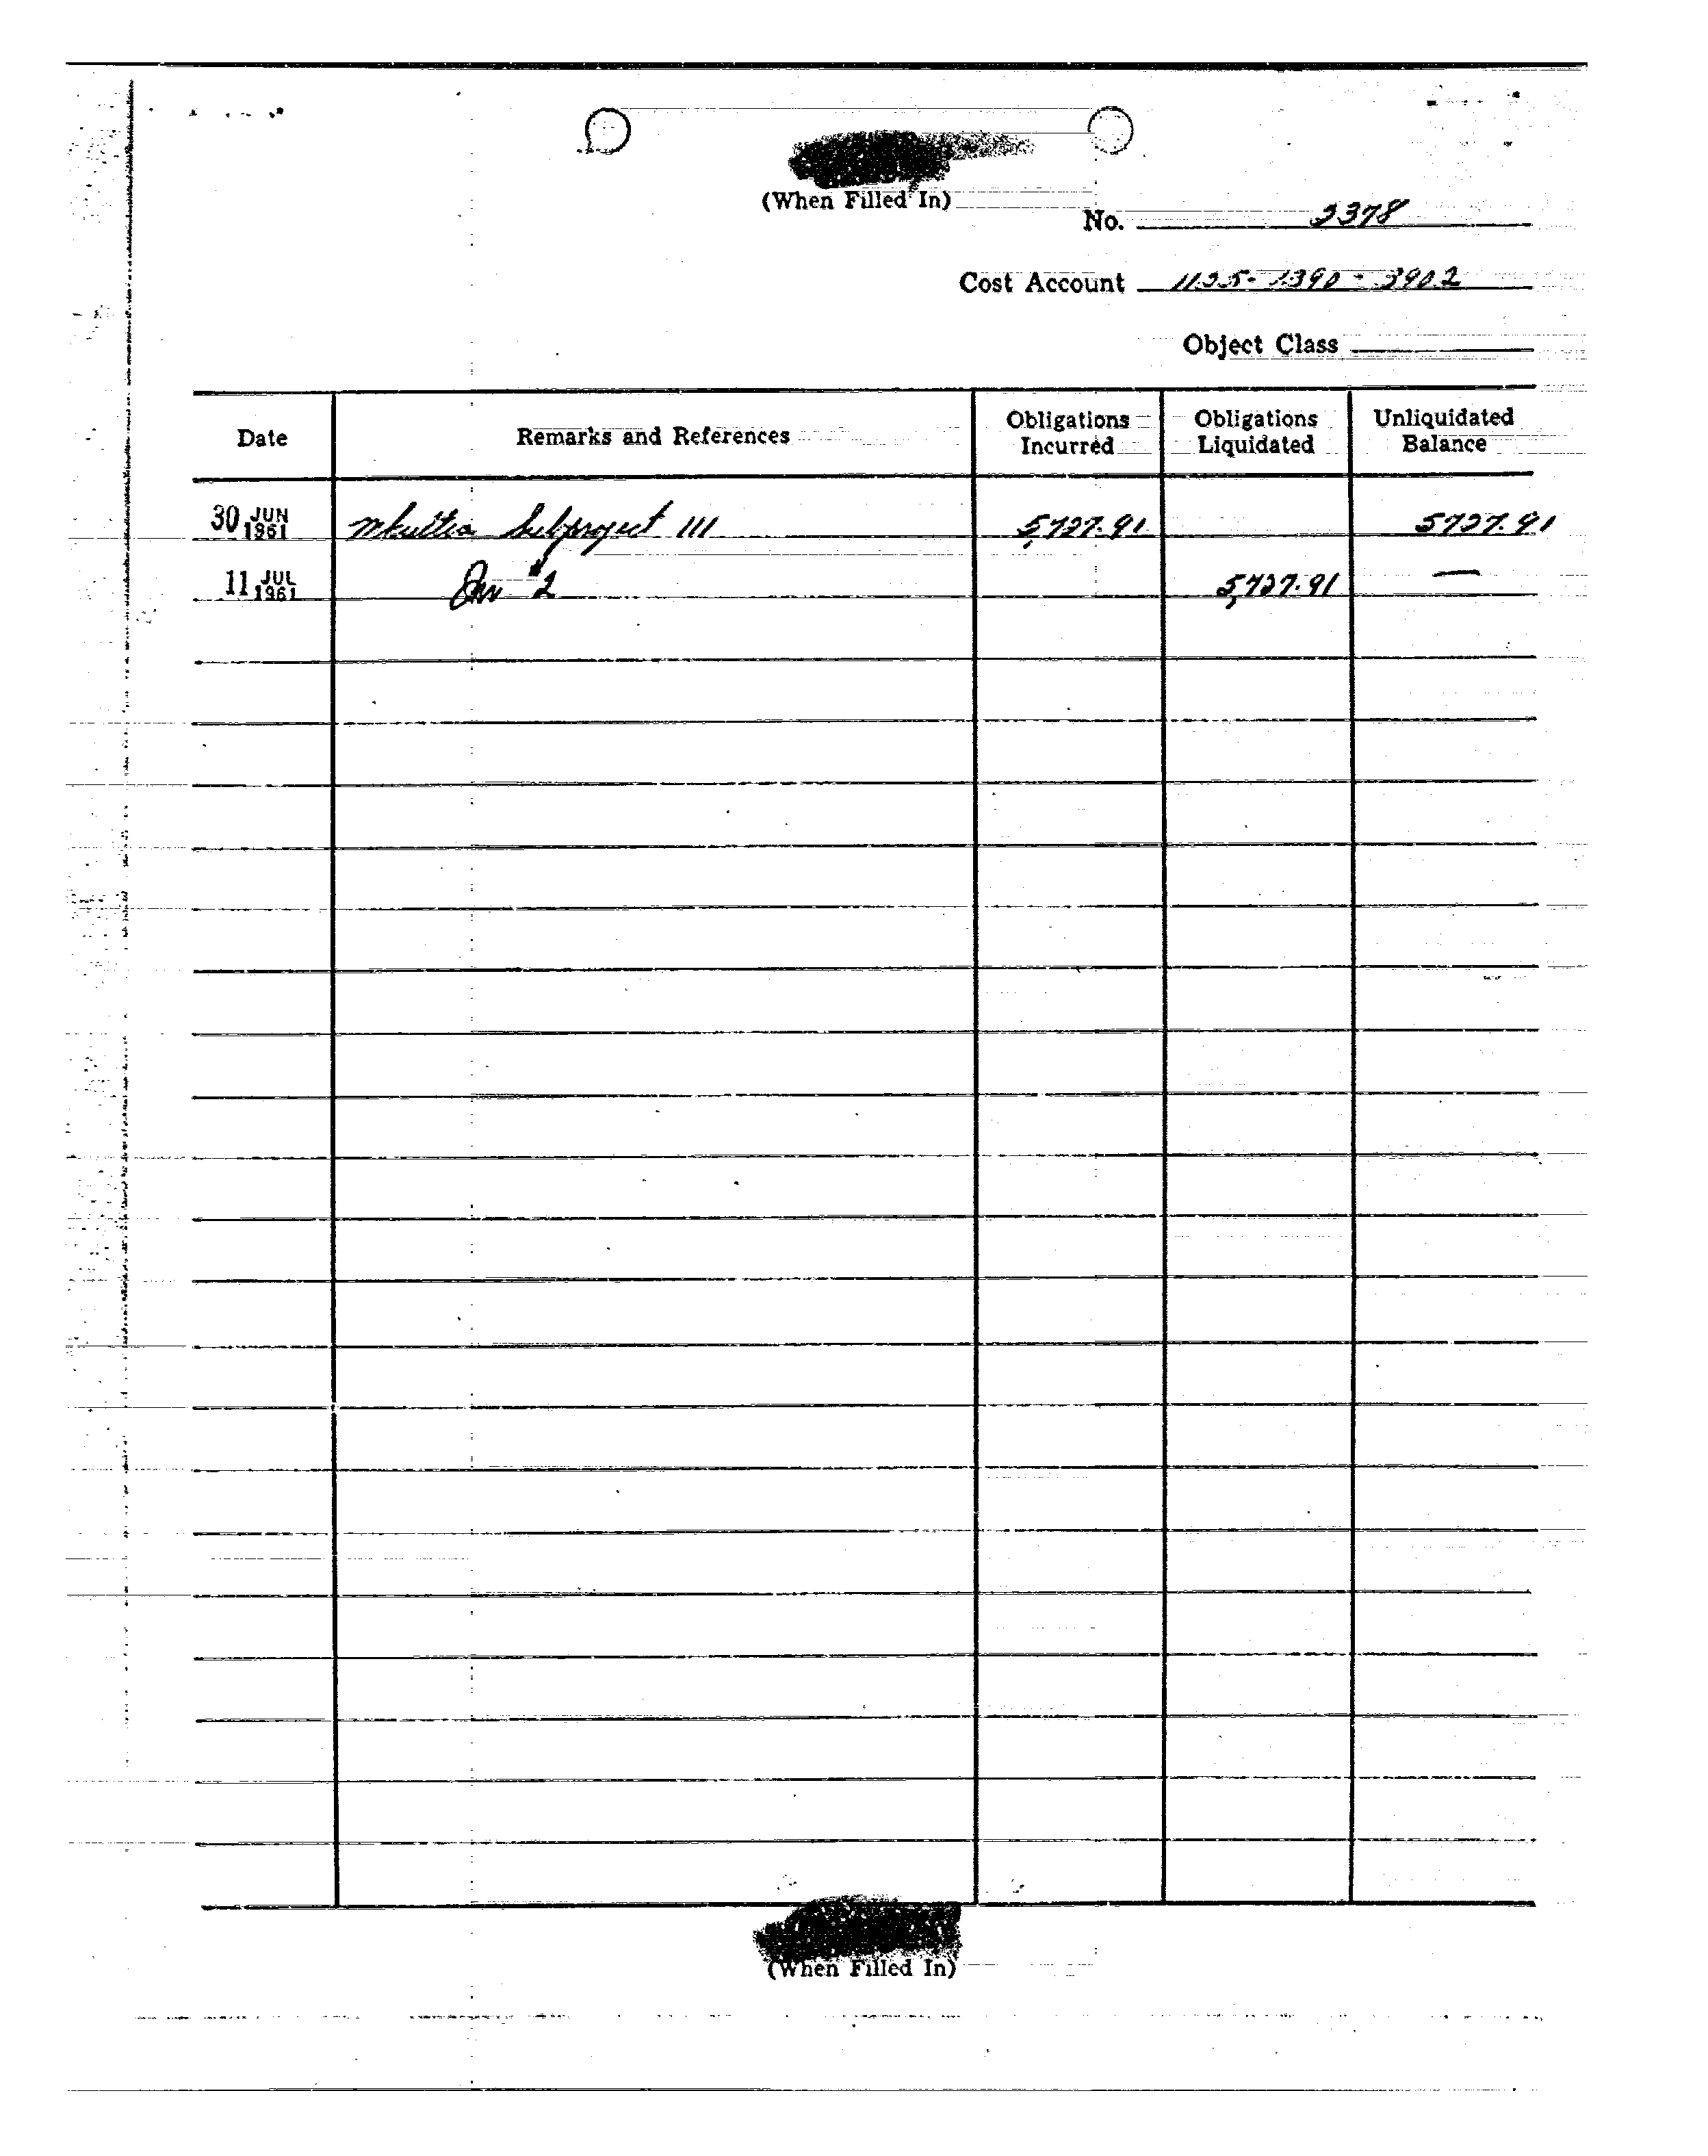 (When Filled In)
No. 3378
Cost Account 1125-1390-3902
Object Class
Date Remarks and References Obligations Incurred Obligations Liquidated Unliquidated Balance
30 JUN 1961 Mkultra Subproject 111 5,727.91 5727.91
11 JUL 1961 Inv #2 5,727.91 —
(When Filled In)